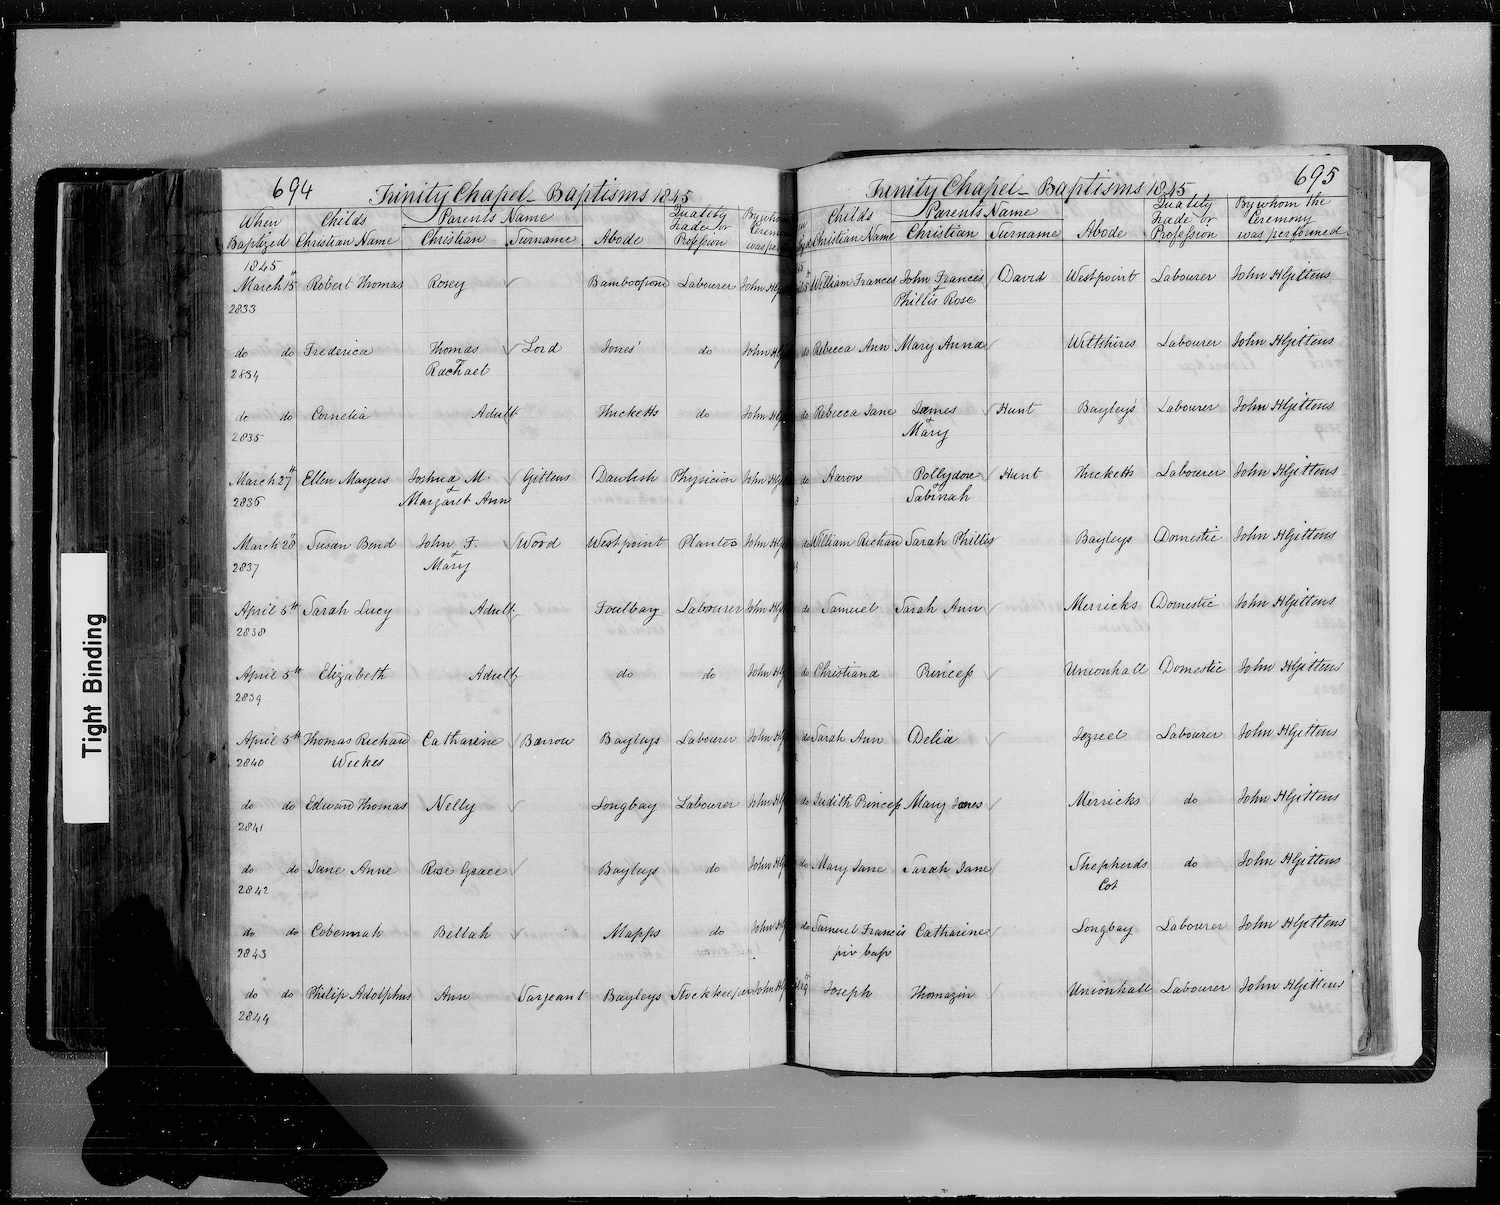 694
Trinity Chapel Baptisms 1845
When Baptized
Childs Christian Name
Parents Name
Christian
Surname
Abode
Quality Trade or Profession
By whom
1845
March 15th Robert Thomas Rosey Labourer John H
2833
do do Frederica Thomas + Rachael Lord Jones' do John H
2834
do do Cornelia Adult Thicketts do John H
2835
March 27th Ellen Mayers Joshua M. + Margaret Ann Gittens Dawlish Physician John H
2836
March 28th Susan Bend John F. + Mary Wood Westpoint Planter John H
2837
April 5th Sarah Lucy Adult Foulbay Labourer John H
2838
April 5th Elizabeth Adult do do John H
2839
April 5th Thomas Richard Weekes Catharine Barrow Bayleys Labourer John H
2840
do do Edward Thomas Nelly Longbay Labourer John H
2841
do do Jane Anne Rose Grace Bayleys do John H
2842
do do Bellah Mapps do John H
2843
do do Philip Adolphus Ann Sarjeant Bayleys Stockkeeper John H
2844
695
Trinity Chapel Baptisms 1845
Childs Christian Name
Parents Name
Christian
Surname
Abode
Quality Trade or Profession
By whom the Ceremony was performed
William Frances John Francis + Phillis Rose David Westpoint Labourer John H Gittens
do Rebecca Ann Mary Anna Wiltshires Labourer John H Gittens
do Rebecca Jane James + Mary Hunt Bayley's Labourer John H Gittens
do Aaron Pollydore + Sabinah Hunt Thicketts Labourer John H Gittens
do William Richard Sarah Phillis Bayleys Domestic John H Gittens
do Samuel Sarah Ann Merricks Domestic John H Gittens
do Christiana Princess Unionhall Domestic John H Gittens
do Sarah Ann Delia Jezreel Labourer John H Gittens
do Judith Princess Mary Jones Merricks do John H Gittens
do Mary Jane Sarah Jane Shepherds Cot do John H Gittens
do Samuel Francis Catharine Longbay Labourer John H Gittens
priv bap
Joseph Thomazin Unionhall Labourer John H Gittens
Tight Binding